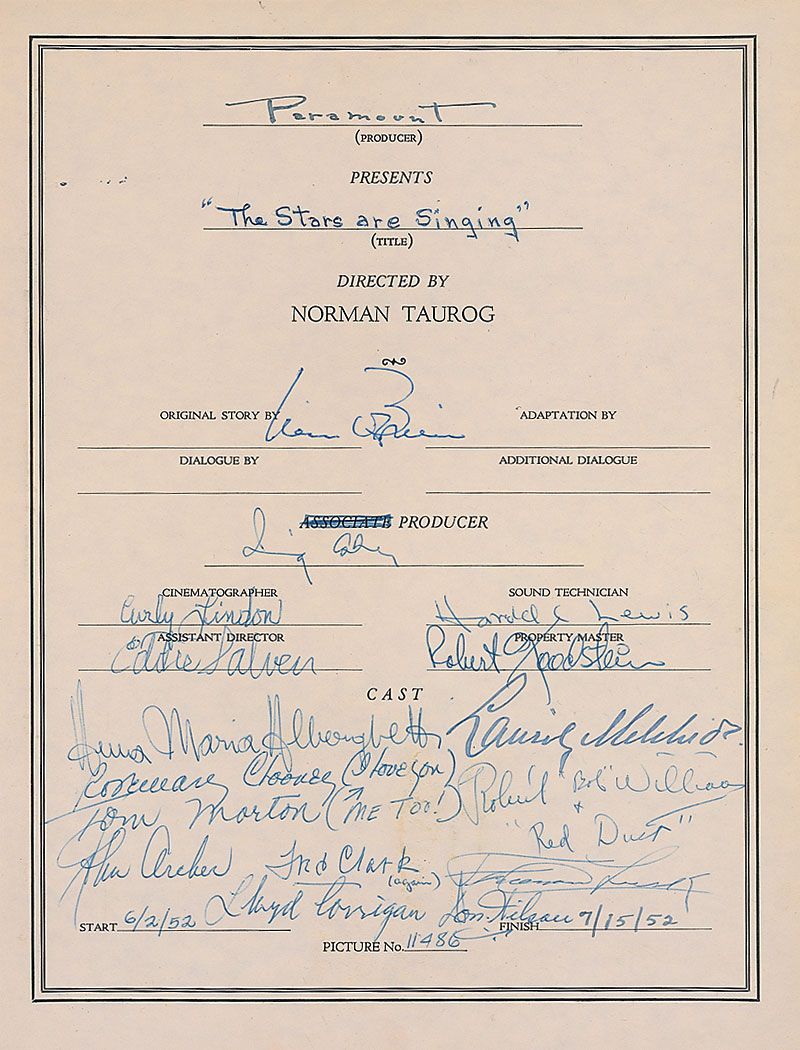 Paramount
(PRODUCER)
PRESENTS
"The Stars are Singing"
(TITLE)
DIRECTED BY
NORMAN TAUROG
ORIGINAL STORY BY
ADAPTATION BY
DIALOGUE BY
ADDITIONAL DIALOGUE
ASSOCIATE PRODUCER
CINEMATOGRAPHER
Curly Lindon
SOUND TECHNICIAN
Harold C Lewis
ASSISTANT DIRECTOR
Eddie Salven
PROPERTY MASTER
Robert Goodstein
CAST
Anna Maria Alberghetti
Lauritz Melchior
Rosemary Clooney (I love you)
Tom Morton (ME TOO!)
Robert "Bob" Williams
+
"Red Dust"
John Archer
Fred Clark
(again)
Lloyd Corrigan
START 6/2/52
FINISH 7/15/52
PICTURE No. 11486